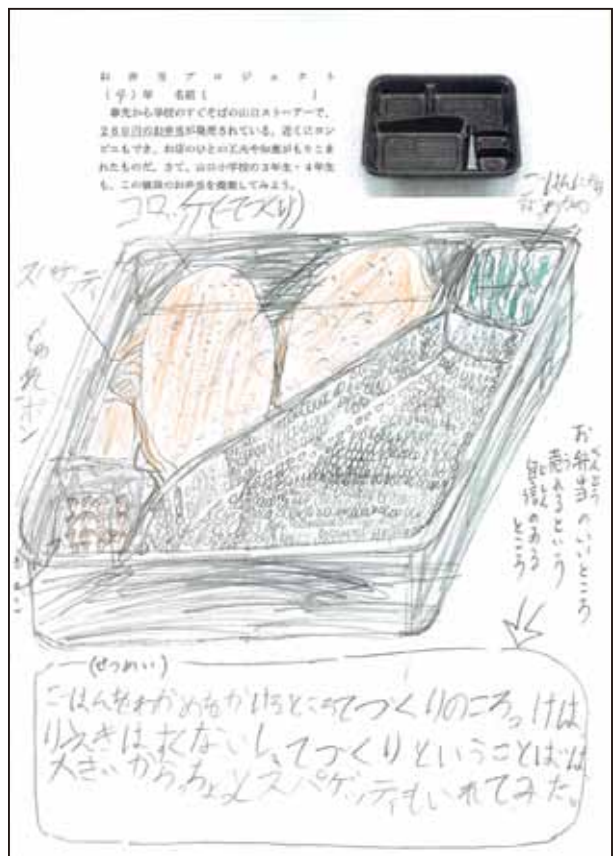 お弁当プロジェクト
(4)年 名前( )
春先から学校のすぐそばの山口ストーアーで、
250円のお弁当が発売されている。近くにコン
ビニもでき、お店のひとの工夫や知恵がもりこま
れたものだ。さて、山口小学校の3年生・4年生
も、この値段のお弁当を提案してみよう。
コロッケ(てづくり)
スパゲティ
お弁当のいいところ
べんとう
売れるという
自信のある
ところ
(せつめい)
ごはんをわかめをかけるところてづくりのころっけは
りえきはすくないし、てづくりということばは
大きいからちょっとスパゲッティもいれてみた。